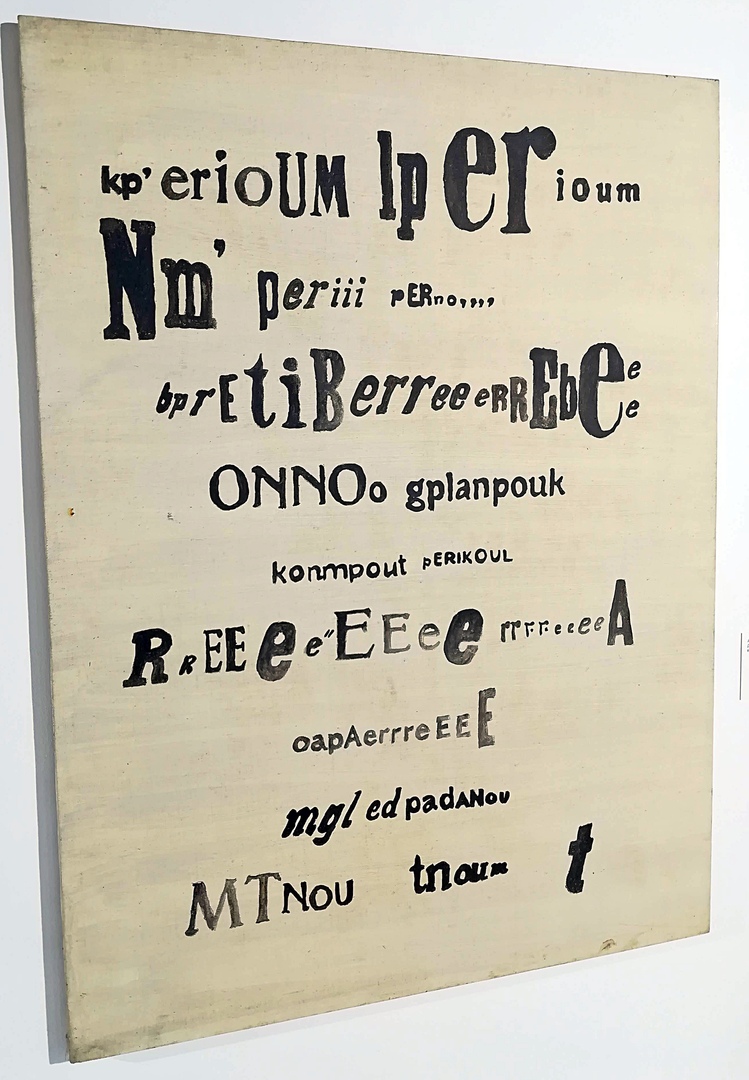 kp' erioUM lp er ioum
Nm' periii pERno,,,,
bprEtiBerreeeRREbEee
ONNOo gplanpouk
konmpout pERIKOUL
RREEee"EEeerrrrreeeeA
oapAerrreEEE
mgl ed padANou
MTNOU tnoum t